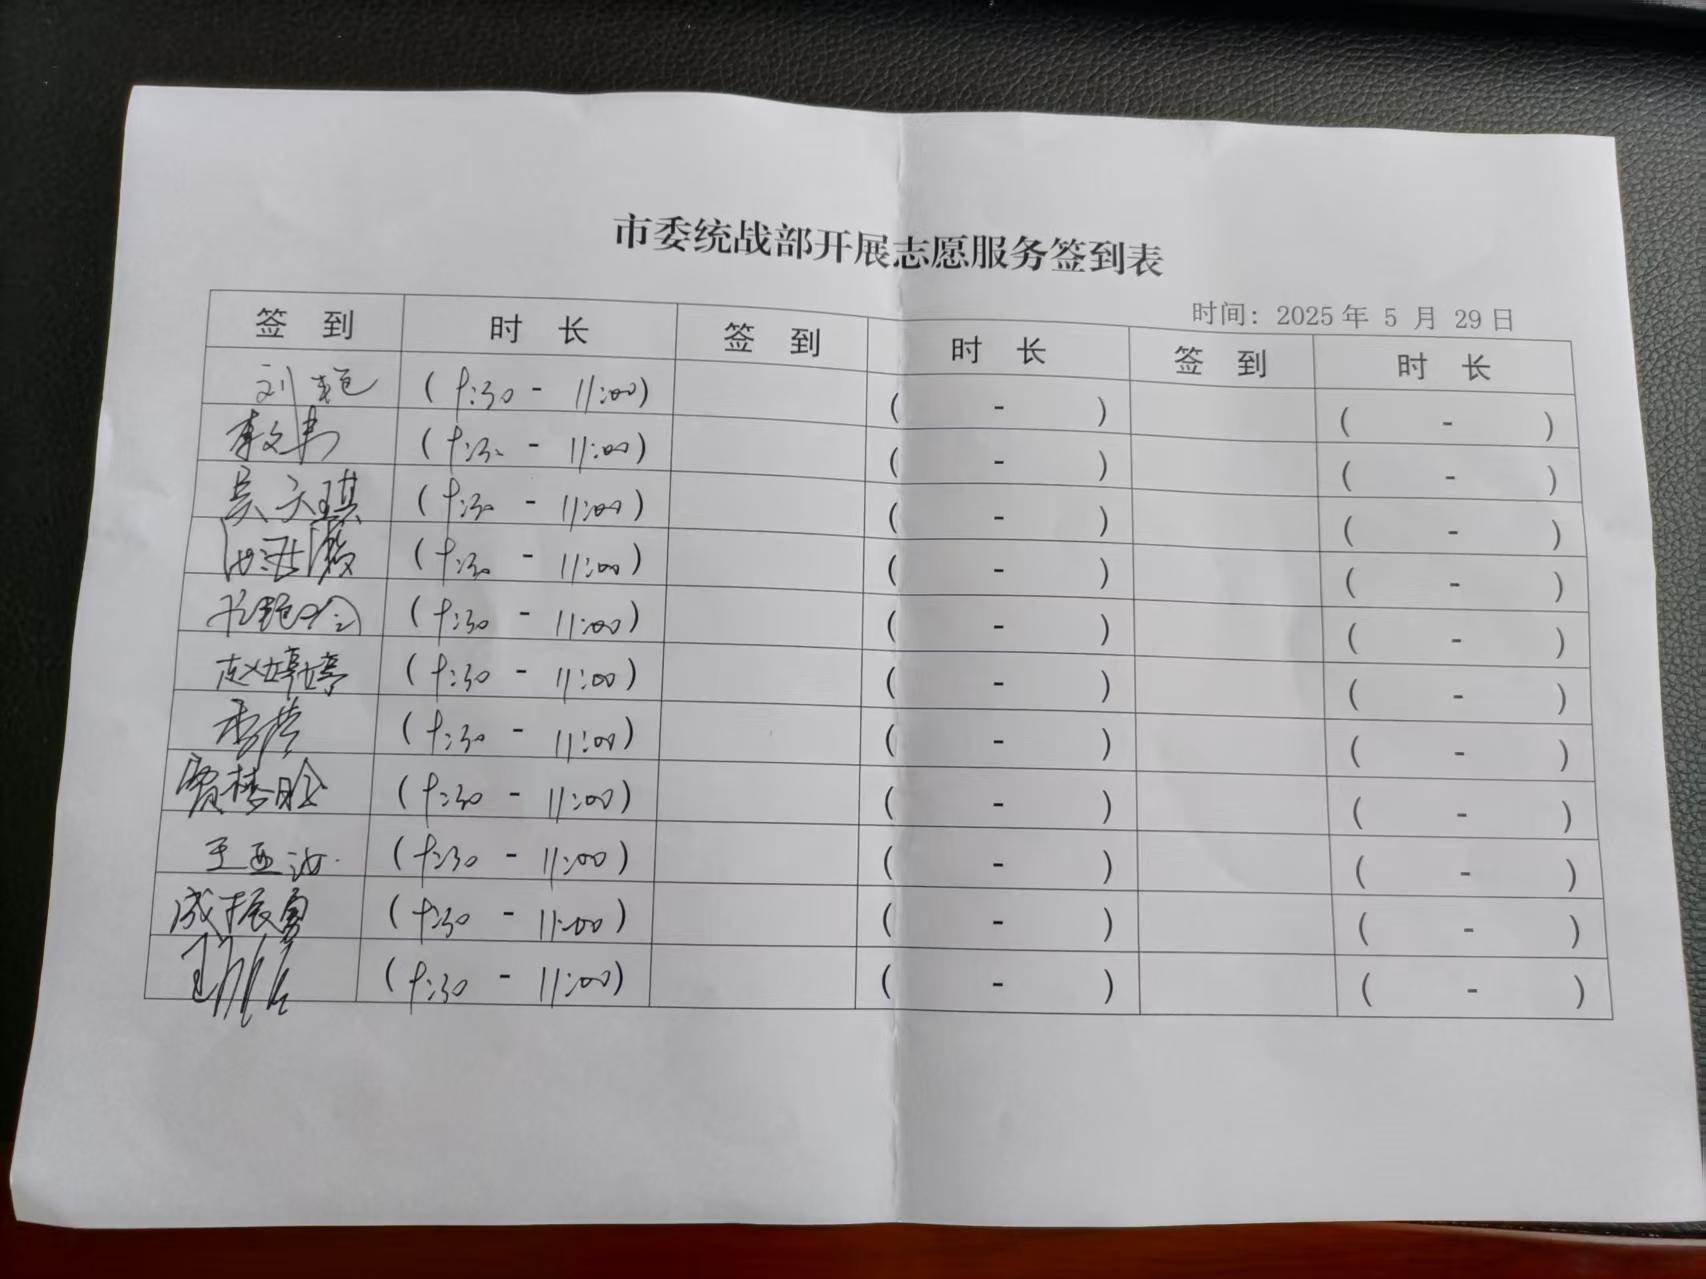 市委统战部开展志愿服务签到表
时间：2025年 5 月 29日
签 到 时 长 签 到 时 长 签 到 时 长
刘艳 (9:30 - 11:00) ( - ) ( - )
李文 (9:30 - 11:00) ( - ) ( - )
吴天琪 (9:30 - 11:00) ( - ) ( - )
(9:30 - 11:00) ( - ) ( - )
(9:30 - 11:00) ( - ) ( - )
赵婷婷 (9:30 - 11:00) ( - ) ( - )
李萍 (9:30 - 11:00) ( - ) ( - )
贾梦 (9:30 - 11:00) ( - ) ( - )
王亚汝 (9:30 - 11:00) ( - ) ( - )
成振勇 (9:30 - 11:00) ( - ) ( - )
王 (9:30 - 11:00) ( - ) ( - )